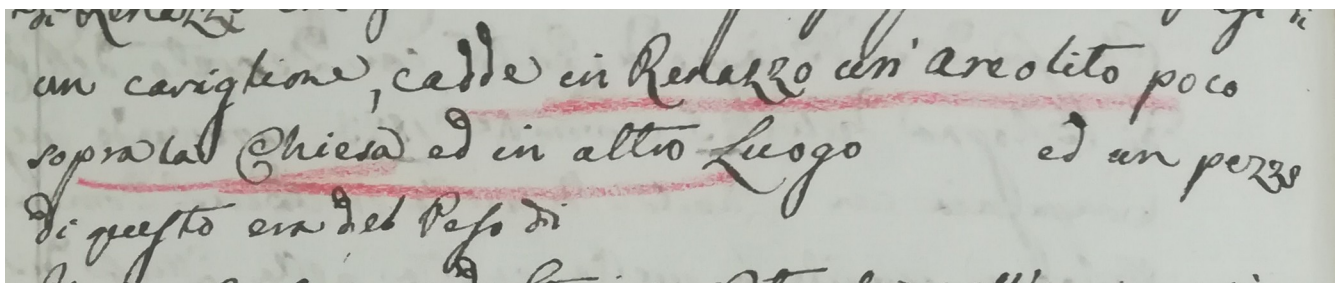 di Renazzo
un caviglione, cadde in Renazzo un' areolito poco
sopra la Chiesa ed in altro Luogo ed un pezzo
di questo era del Peso di